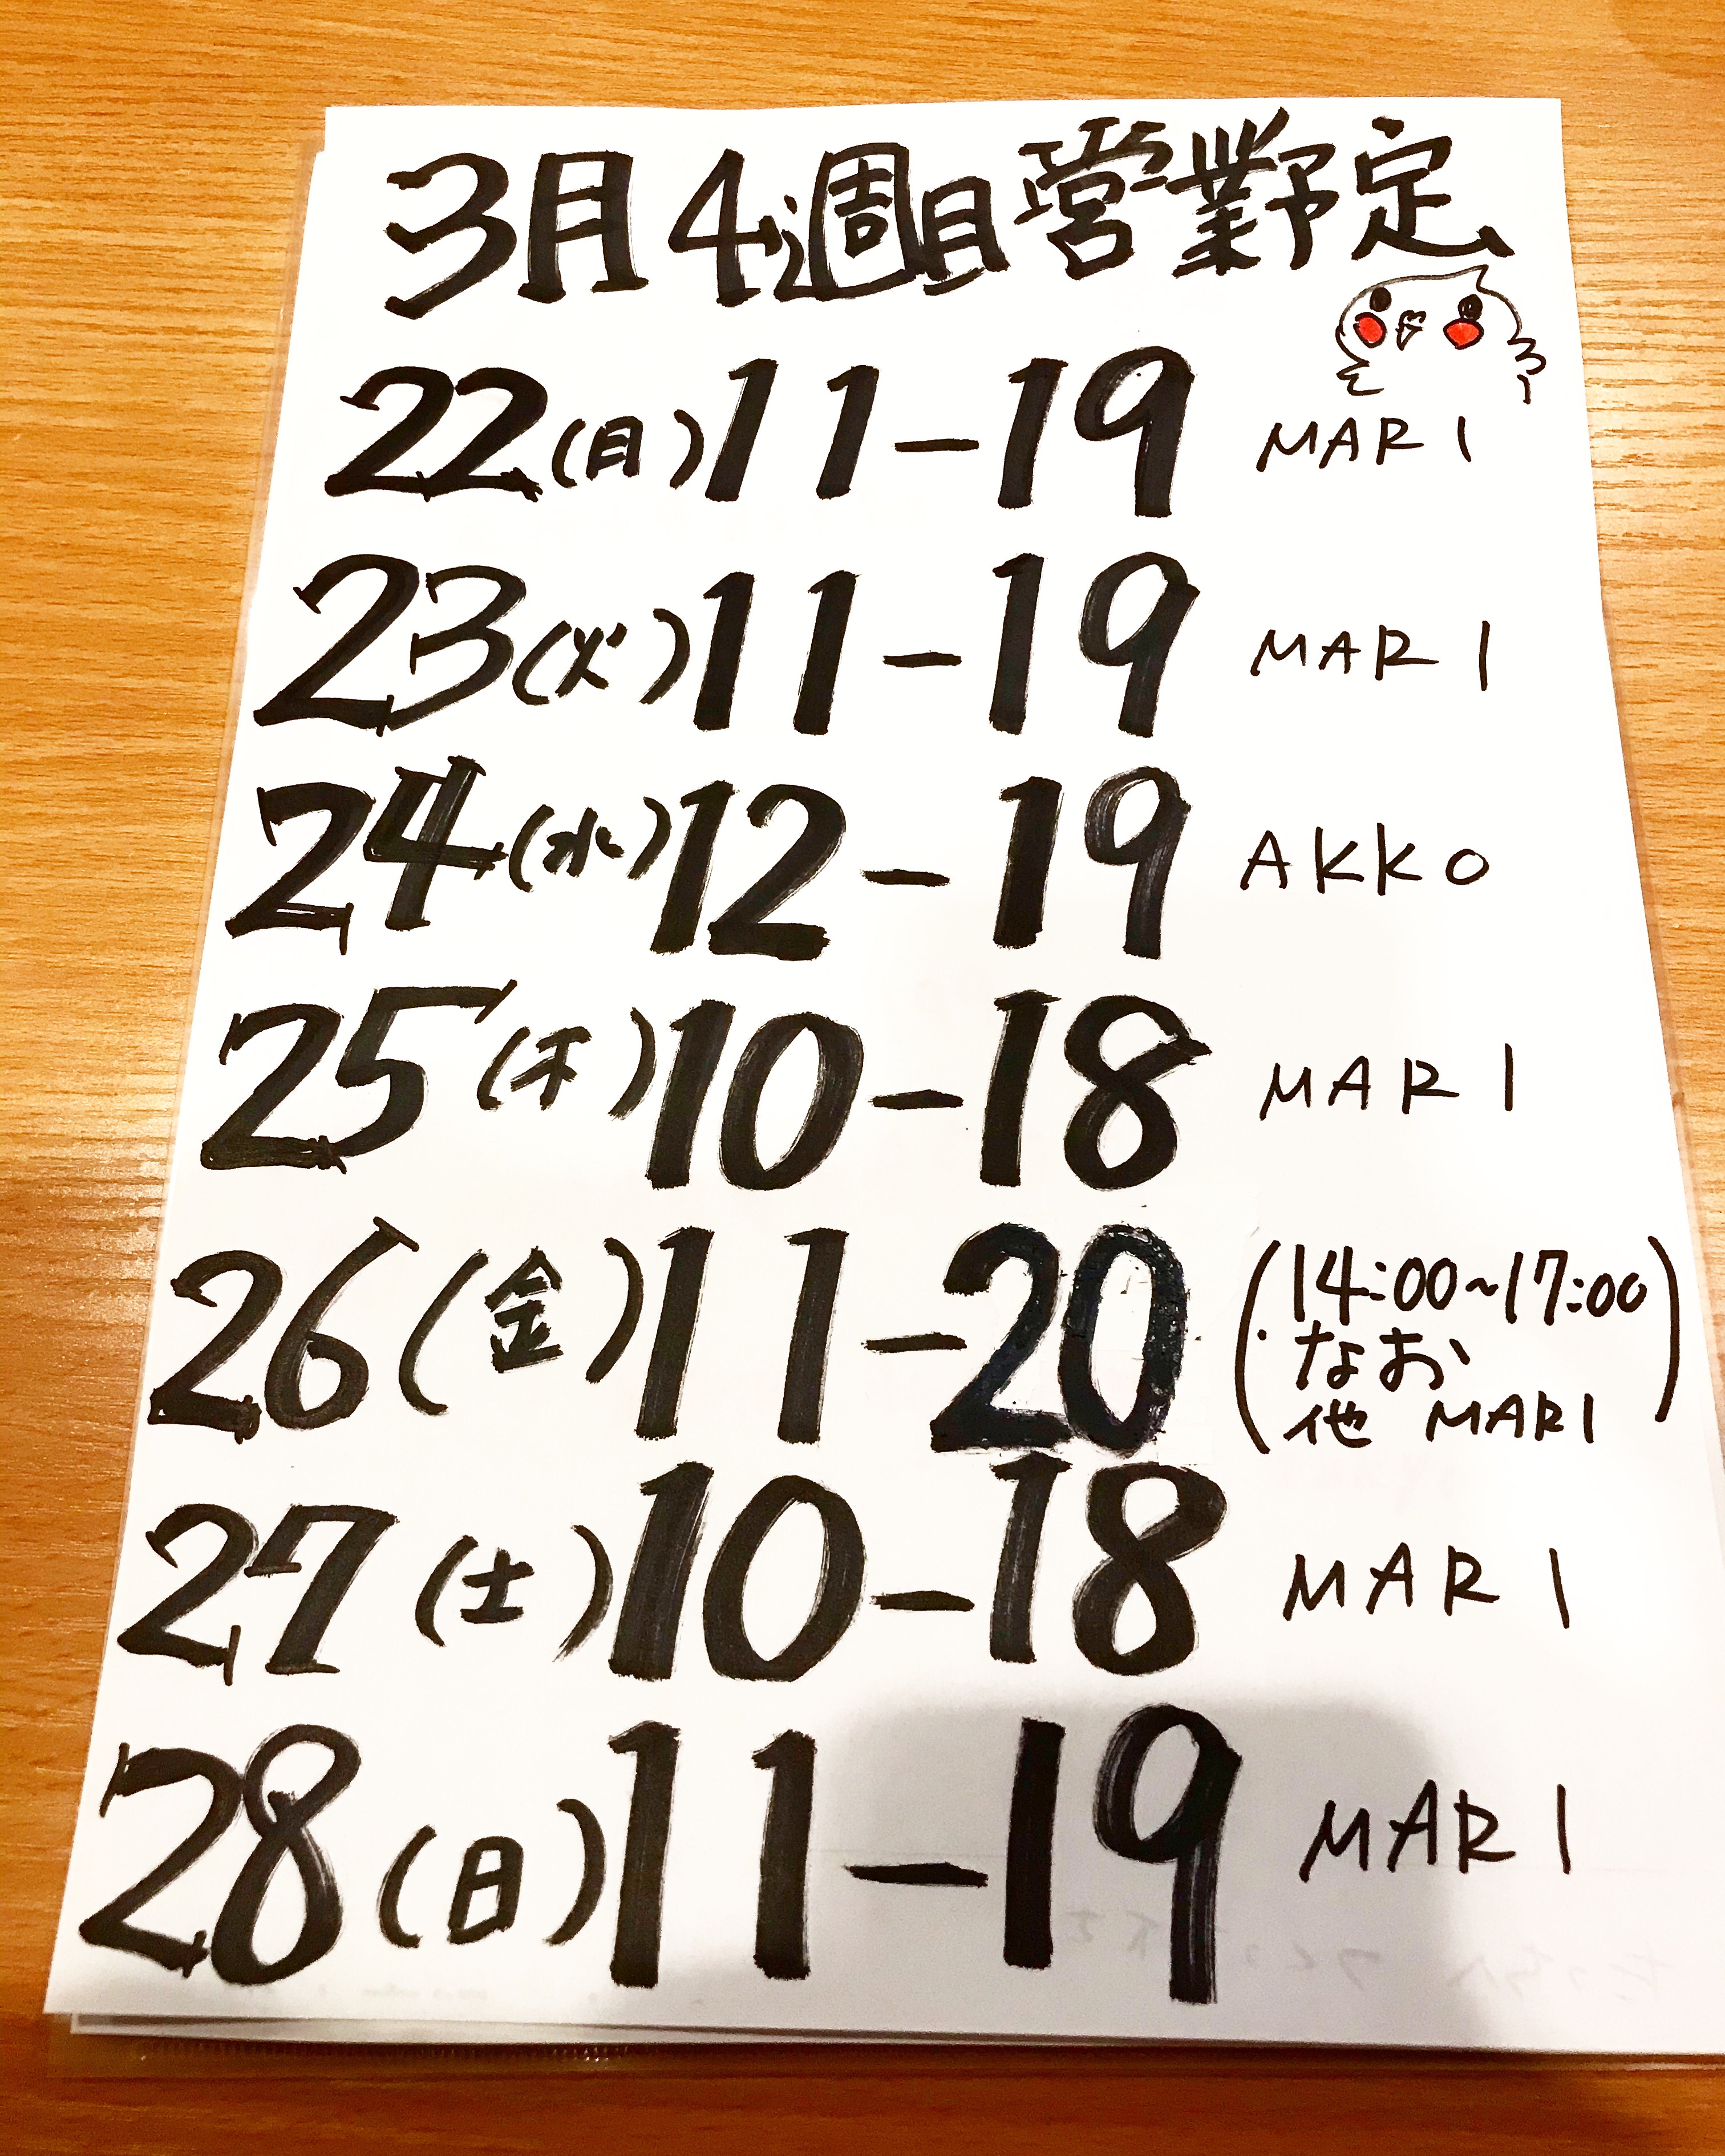 3月4週目営業予定
22(月)11-19 MARI
23(火)11-19 MARI
24(水)12-19 AKKO
25(木)10-18 MARI
26(金)11-20 (14:00~17:00
なお
他 MARI)
27(土)10-18 MARI
28(日)11-19 MARI